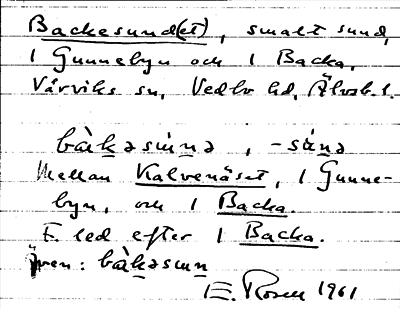 Backesund(et), smalt sund,
1 Gunnebyn och 1 Backa,
Vårviks sn, Vedbo hd, Älvsb. l.
bàkəsùnə, -sùnə
Mellan Kalvenäset, 1 Gunne-
byn, och 1 Backa.
F. led efter 1 Backa.
Även: bàkəsun
E. Rosen 1961